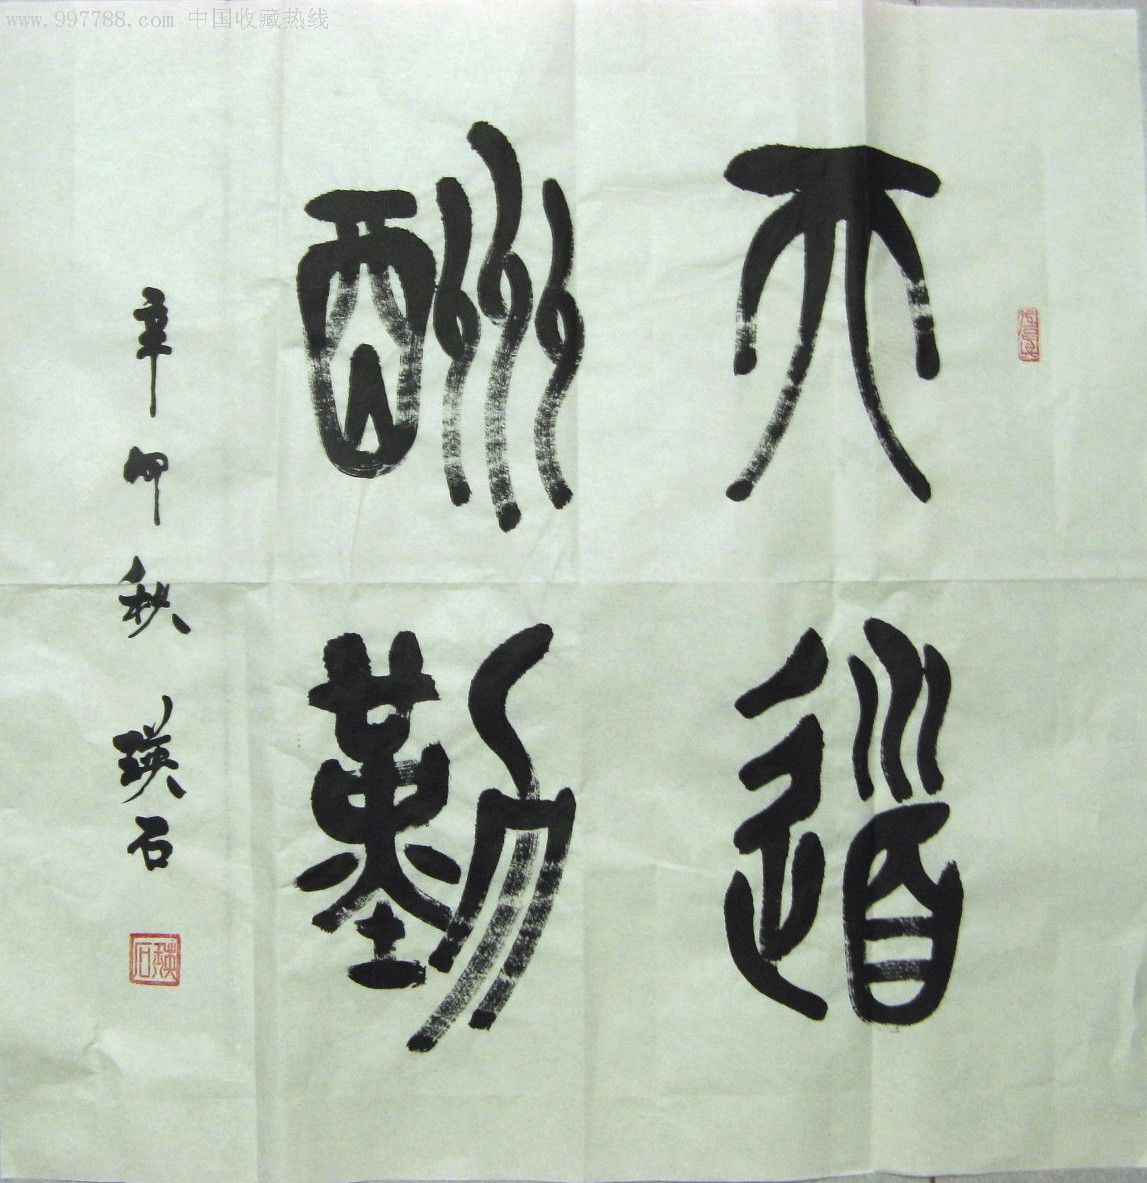 www.997788.com 中国收藏热线
天道
酬勤
辛卯秋 瑛石
瑛石